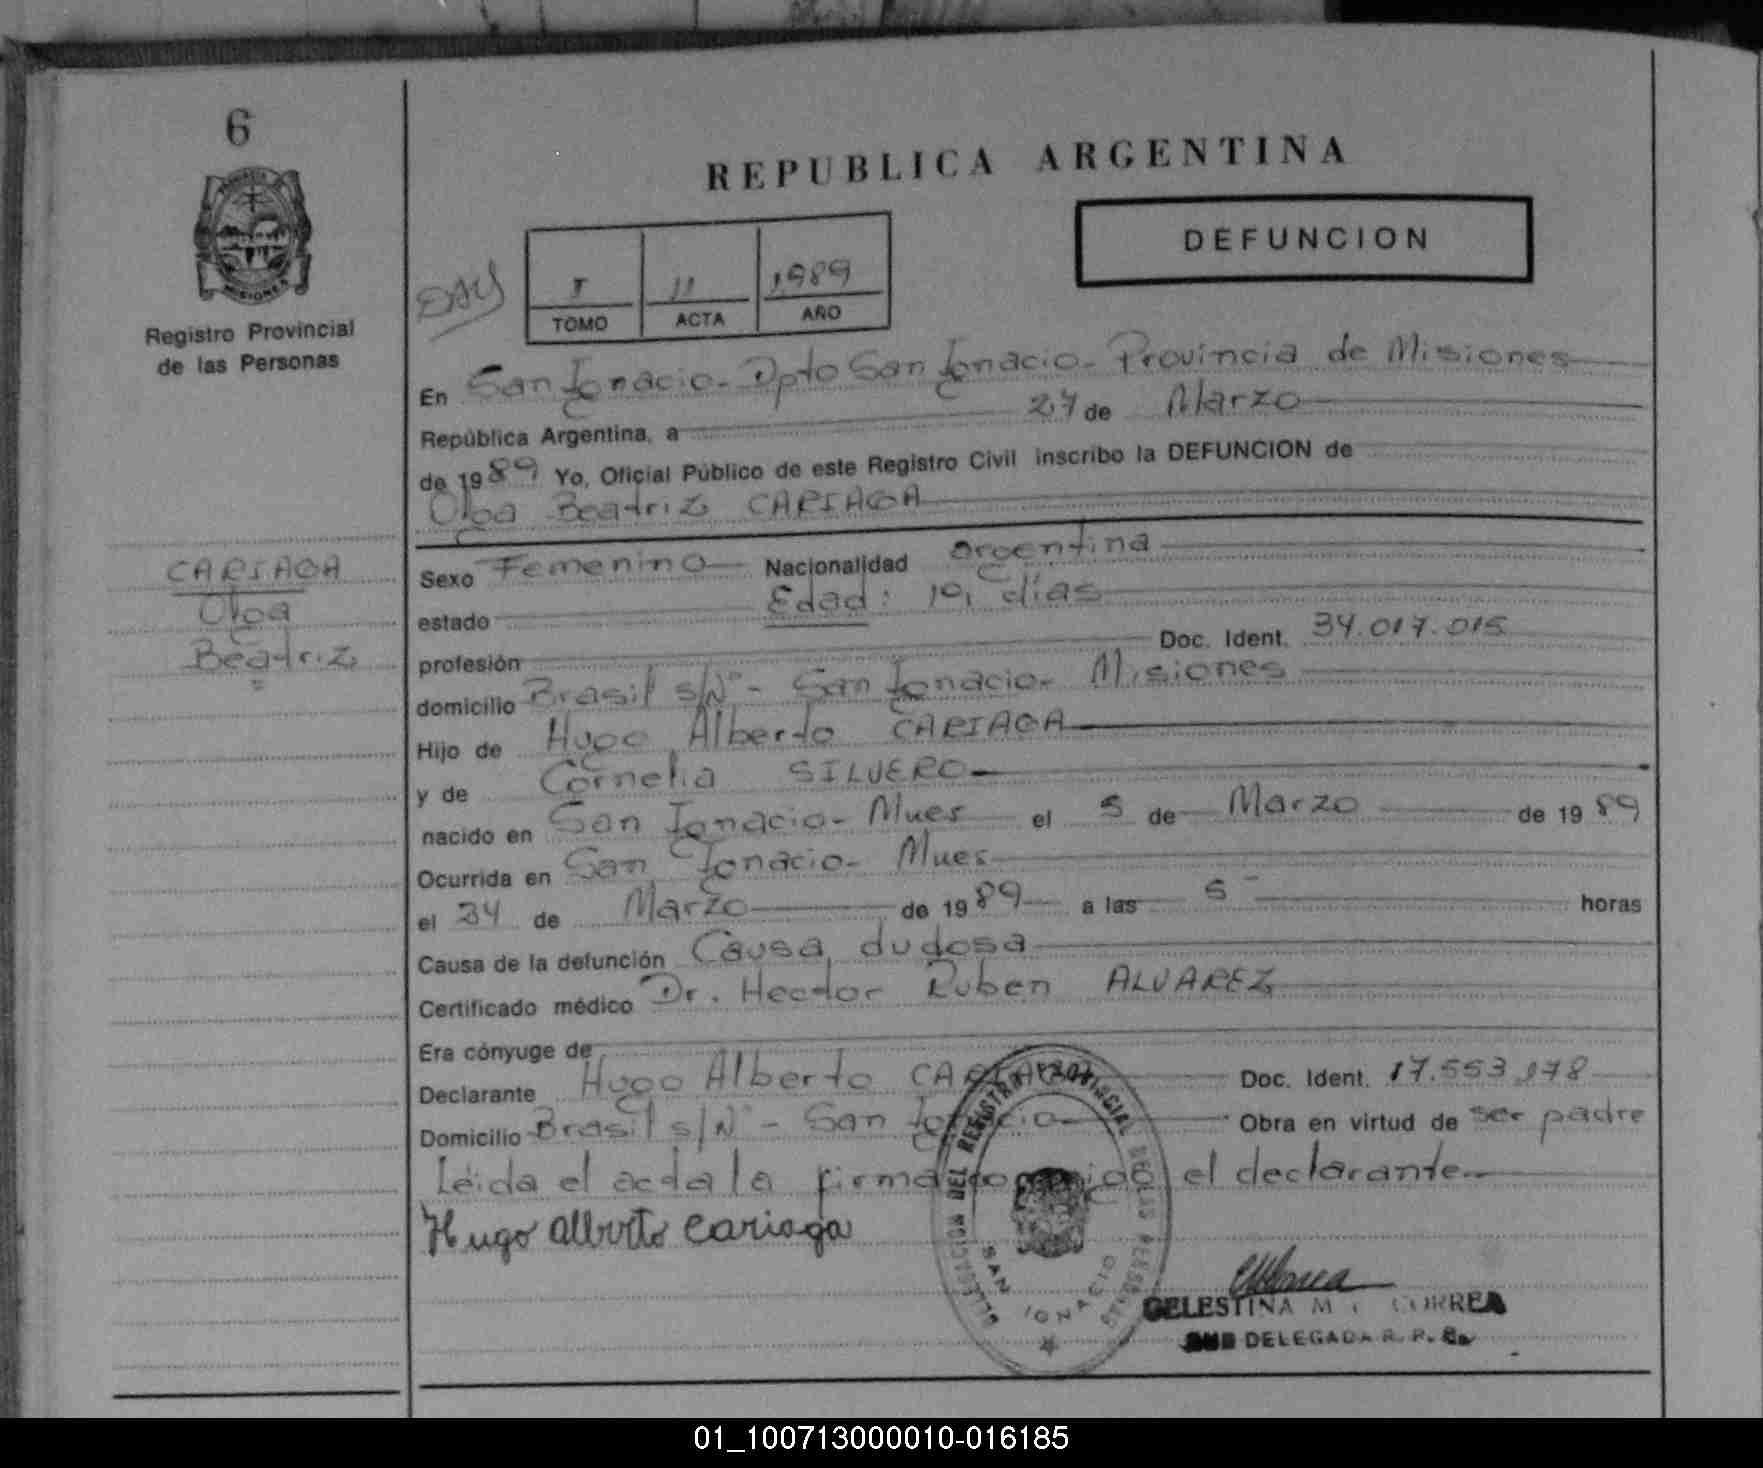 6
REPUBLICA ARGENTINA
DEFUNCION
I 11 1989
TOMO ACTA AÑO
Registro Provincial
de las Personas
En San Ignacio - Dpto San Ignacio - Provincia de Misiones
República Argentina, a 27 de Marzo
de 1989 Yo, Oficial Público de este Registro Civil inscribo la DEFUNCION de
Olga Beatriz CARIAGA
CARIAGA
Olga
Beatriz
Sexo Femenino Nacionalidad argentina
estado Edad: 19 días
profesión Doc. Ident. 34.017.015
domicilio Brasil s/Nº - San Ignacio - Misiones
Hijo de Hugo Alberto CARIAGA
y de Cornelia SILVERO
nacido en San Ignacio - Mnes el 5 de Marzo de 1989
Ocurrida en San Ignacio - Mnes
el 24 de Marzo de 1989 a las 5 horas
Causa de la defunción Causa dudosa
Certificado médico Dr. Hector Ruben ALVAREZ
Era cónyuge de
Declarante Hugo Alberto CARIAGA Doc. Ident. 17.553.178
Domicilio Brasil s/Nº - San Ignacio Obra en virtud de ser padre
Leida el acta la firma conmigo el declarante
Hugo Alberto Cariaga
DEL REGISTRO PROVINCIAL DE LAS PERSONAS
SAN IGNACIO
CELESTINA M CORREA
SUB DELEGADA R. P.
01_100713000010-016185